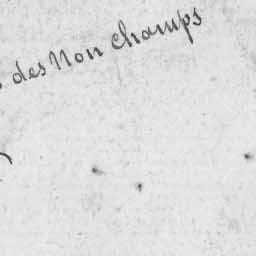 des Non champs